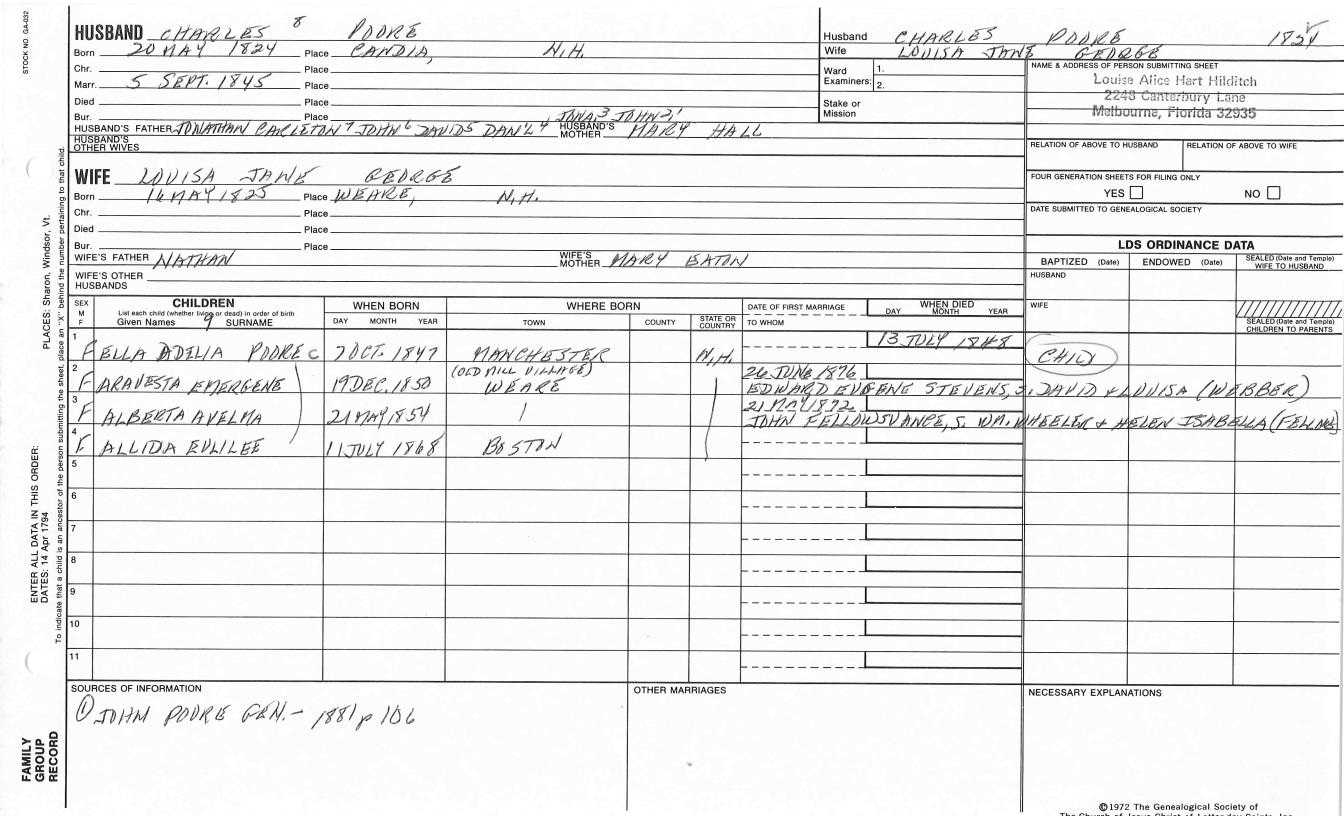 STOCK NO. GA-032
HUSBAND CHARLES 8 POORE
Born 20 MAY 1824 Place CANDIA, N.H.
Chr. Place
Marr. 5 SEPT. 1845 Place
Died Place
Bur. Place
JONA.3 JOHN2,1
HUSBAND'S FATHER JONATHAN CARLETON 7 JOHN 6 DAVID5 DAN'L 4 HUSBAND'S MOTHER MARY HALL
HUSBAND'S OTHER WIVES
WIFE LOUISA JANE GEORGE
Born 14 MAY 1825 Place WEARE, N.H.
Chr. Place
Died Place
Bur. Place
WIFE'S FATHER NATHAN WIFE'S MOTHER MARY EATON
WIFE'S OTHER HUSBANDS
Husband CHARLES POORE 1824
Wife LOUISA JANE GEORGE
Ward Examiners: 1.
2.
Stake or Mission
NAME & ADDRESS OF PERSON SUBMITTING SHEET
Louise Alice Hart Hilditch
2248 Canterbury Lane
Melbourne, Florida 32935
RELATION OF ABOVE TO HUSBAND RELATION OF ABOVE TO WIFE
FOUR GENERATION SHEETS FOR FILING ONLY
YES NO
DATE SUBMITTED TO GENEALOGICAL SOCIETY
LDS ORDINANCE DATA
BAPTIZED (Date) ENDOWED (Date) SEALED (Date and Temple) WIFE TO HUSBAND
HUSBAND
WIFE
SEALED (Date and Temple) CHILDREN TO PARENTS
SEX M F
CHILDREN
List each child (whether living or dead) in order of birth
Given Names 9 SURNAME
WHEN BORN
DAY MONTH YEAR
WHERE BORN
TOWN COUNTY STATE OR COUNTRY
DATE OF FIRST MARRIAGE
TO WHOM
WHEN DIED
DAY MONTH YEAR
1 F ELLA ADELIA POORE 7 OCT. 1847 MANCHESTER N.H. 13 JULY 1848 CHILD
2 F ARAVESTA EMERGENE 19 DEC. 1850 (OLD MILL VILLAGE) WEARE 26 JUNE 1876
EDWARD EUGENE STEVENS, S. DAVID & LOUISA (WEBBER)
3 F ALBERTA AVELMA 21 MAY 1854 21 MAY 1872
JOHN FELLOWS VANCE, S. WM. WHEELER & HELEN ISABELLA (FELLOWS)
4 F ALLIDA EVLILEE 11 JULY 1868 BOSTON
5
6
7
8
9
10
11
SOURCES OF INFORMATION
① JOHN POORE GEN. - 1881 p 106
OTHER MARRIAGES
NECESSARY EXPLANATIONS
©1972 The Genealogical Society of
The Church of Jesus Christ of Latter-day Saints, Inc.
PLACES: Sharon, Windsor, Vt.
ENTER ALL DATA IN THIS ORDER:
DATES: 14 Apr 1794
To indicate that a child is an ancestor of the person submitting the sheet, place an "X" behind the number pertaining to that child.
FAMILY GROUP RECORD